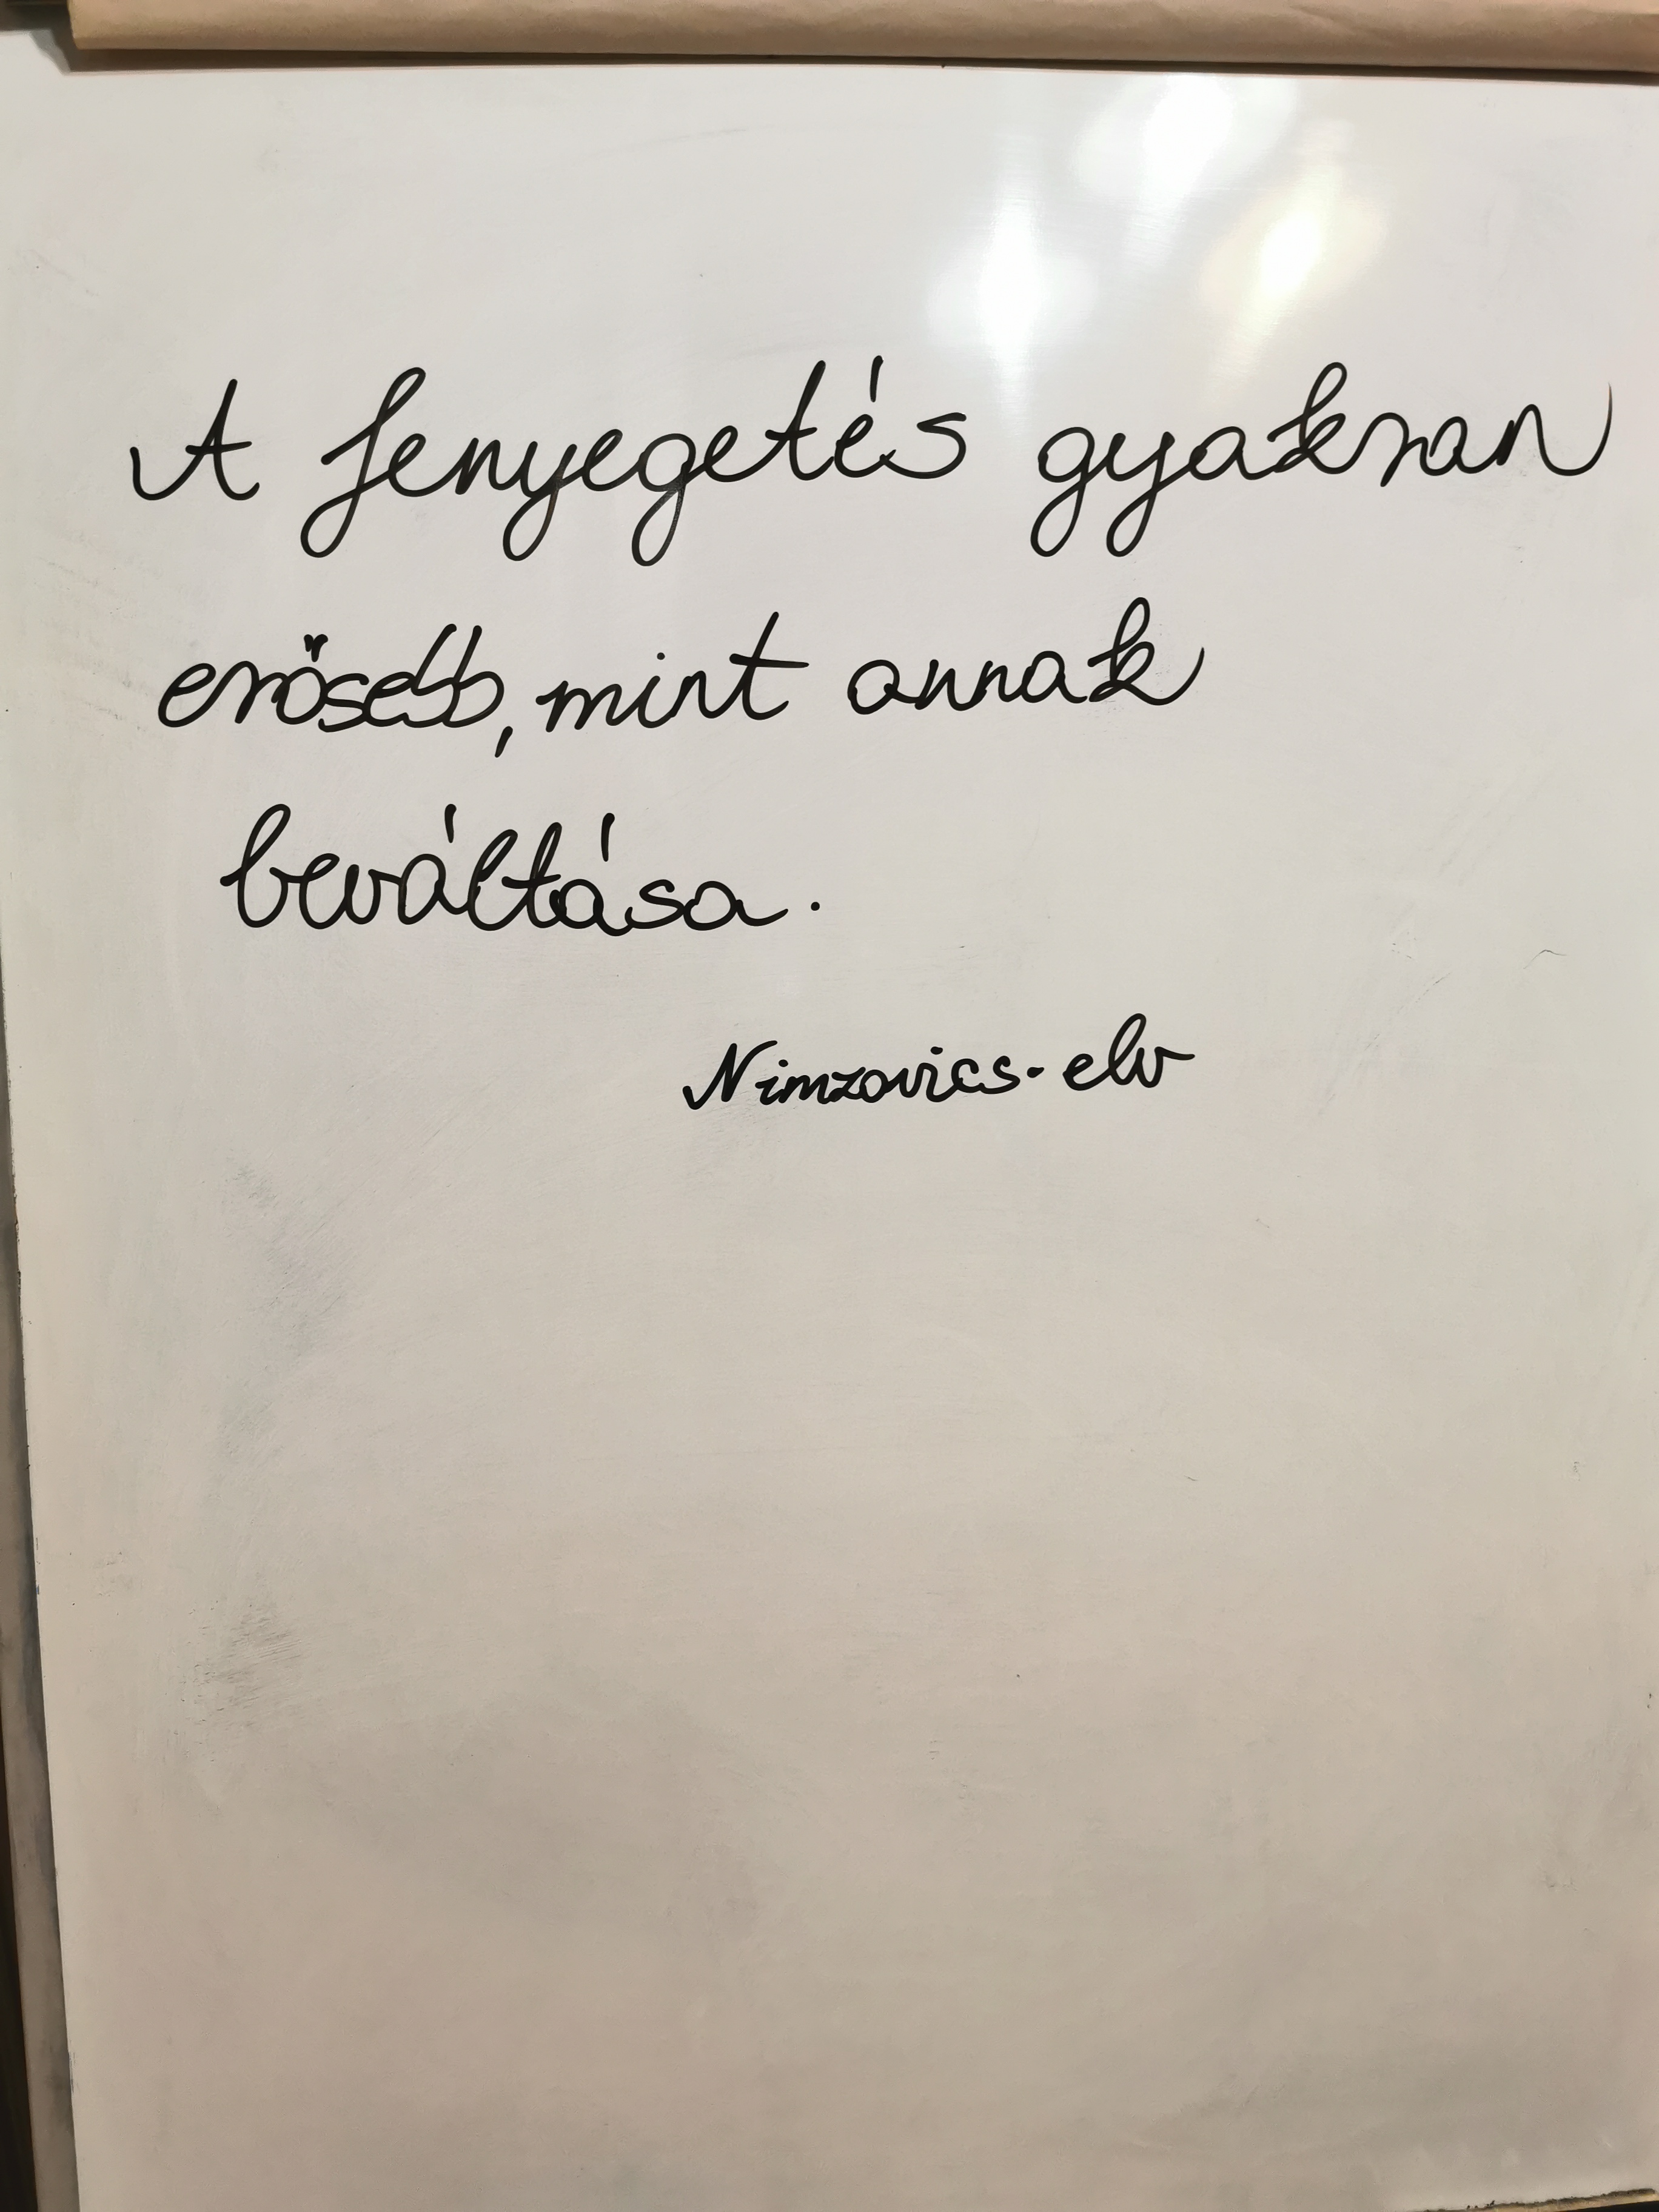 A fenyegetés gyakran
erősebb, mint annak
beváltása.
Nimzovics-elv